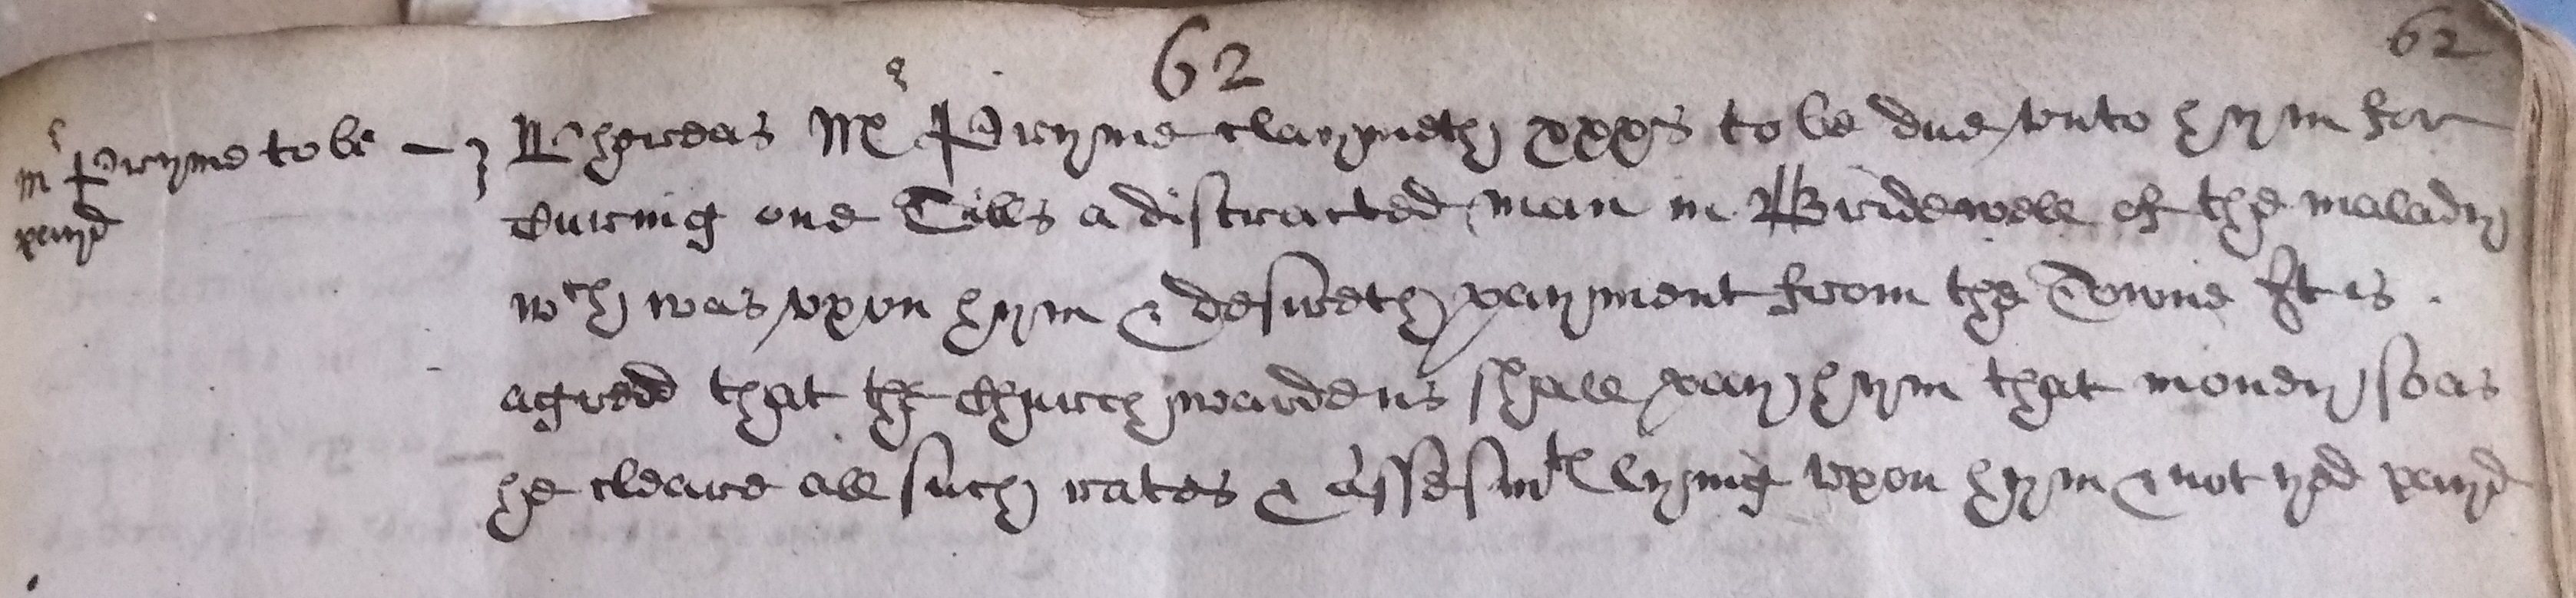 62
62
Mr Pryme to be
payd
Whereas Mr Pryme claymeth xxxs to be due unto hym for
Curing one Tills a distracted man in Bridewell of the malady
wch was upon hym & desireth payment from the Towne It is
agreed that the Churchwardens shall pay hym that money so as
he cleare all such rates & assesmts lying upon hym & not yed payd